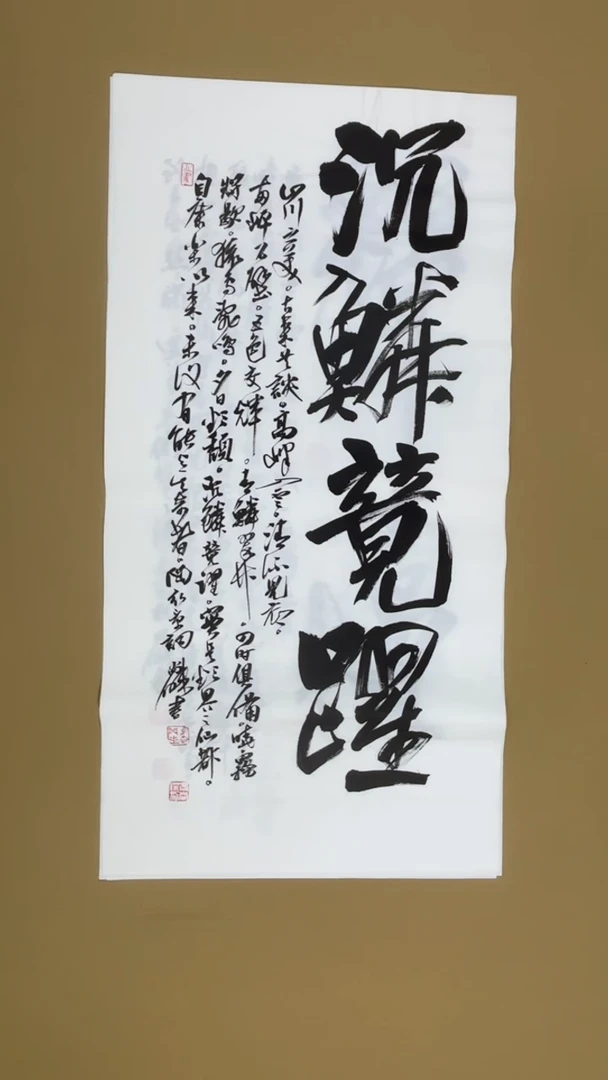 沉鱗竟躍
山川之美。古来共談。高峰入雲。清流見底。
兩岸石壁。五色交輝。青鱗翠竹。四時俱備。曉霧
将歇。猿鸟亂鳴。夕日欲頹。沉鱗竟躍。實是欲界之仙都。
自康樂以来。未復有能与其奇者。陶弘景詞 書